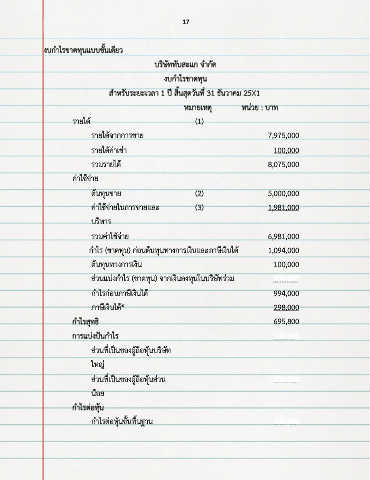 17
งบกำไรขาดทุนแบบขั้นเดียว
บริษัททับสะแก จำกัด
งบกำไรขาดทุน
สำหรับระยะเวลา 1 ปี สิ้นสุดวันที่ 31 ธันวาคม 25X1
หมายเหตุ หน่วย : บาท
รายได้ (1)
รายได้จากการขาย 7,975,000
รายได้ค่าเช่า 100,000
รวมรายได้ 8,075,000
ค่าใช้จ่าย
ต้นทุนขาย (2) 5,000,000
ค่าใช้จ่ายในการขายและ (3) 1,981,000
บริหาร
รวมค่าใช้จ่าย 6,981,000
กำไร (ขาดทุน) ก่อนต้นทุนทางการเงินและภาษีเงินได้ 1,094,000
ต้นทุนทางการเงิน 100,000
ส่วนแบ่งกำไร (ขาดทุน) จากเงินลงทุนในบริษัทร่วม ............
กำไรก่อนภาษีเงินได้ 994,000
ภาษีเงินได้* 298,000
กำไรสุทธิ 695,800
การแบ่งปันกำไร ............
ส่วนที่เป็นของผู้ถือหุ้นบริษัท
ใหญ่
ส่วนที่เป็นของผู้ถือหุ้นส่วน ............
น้อย
กำไรต่อหุ้น
กำไรต่อหุ้นขั้นพื้นฐาน ............